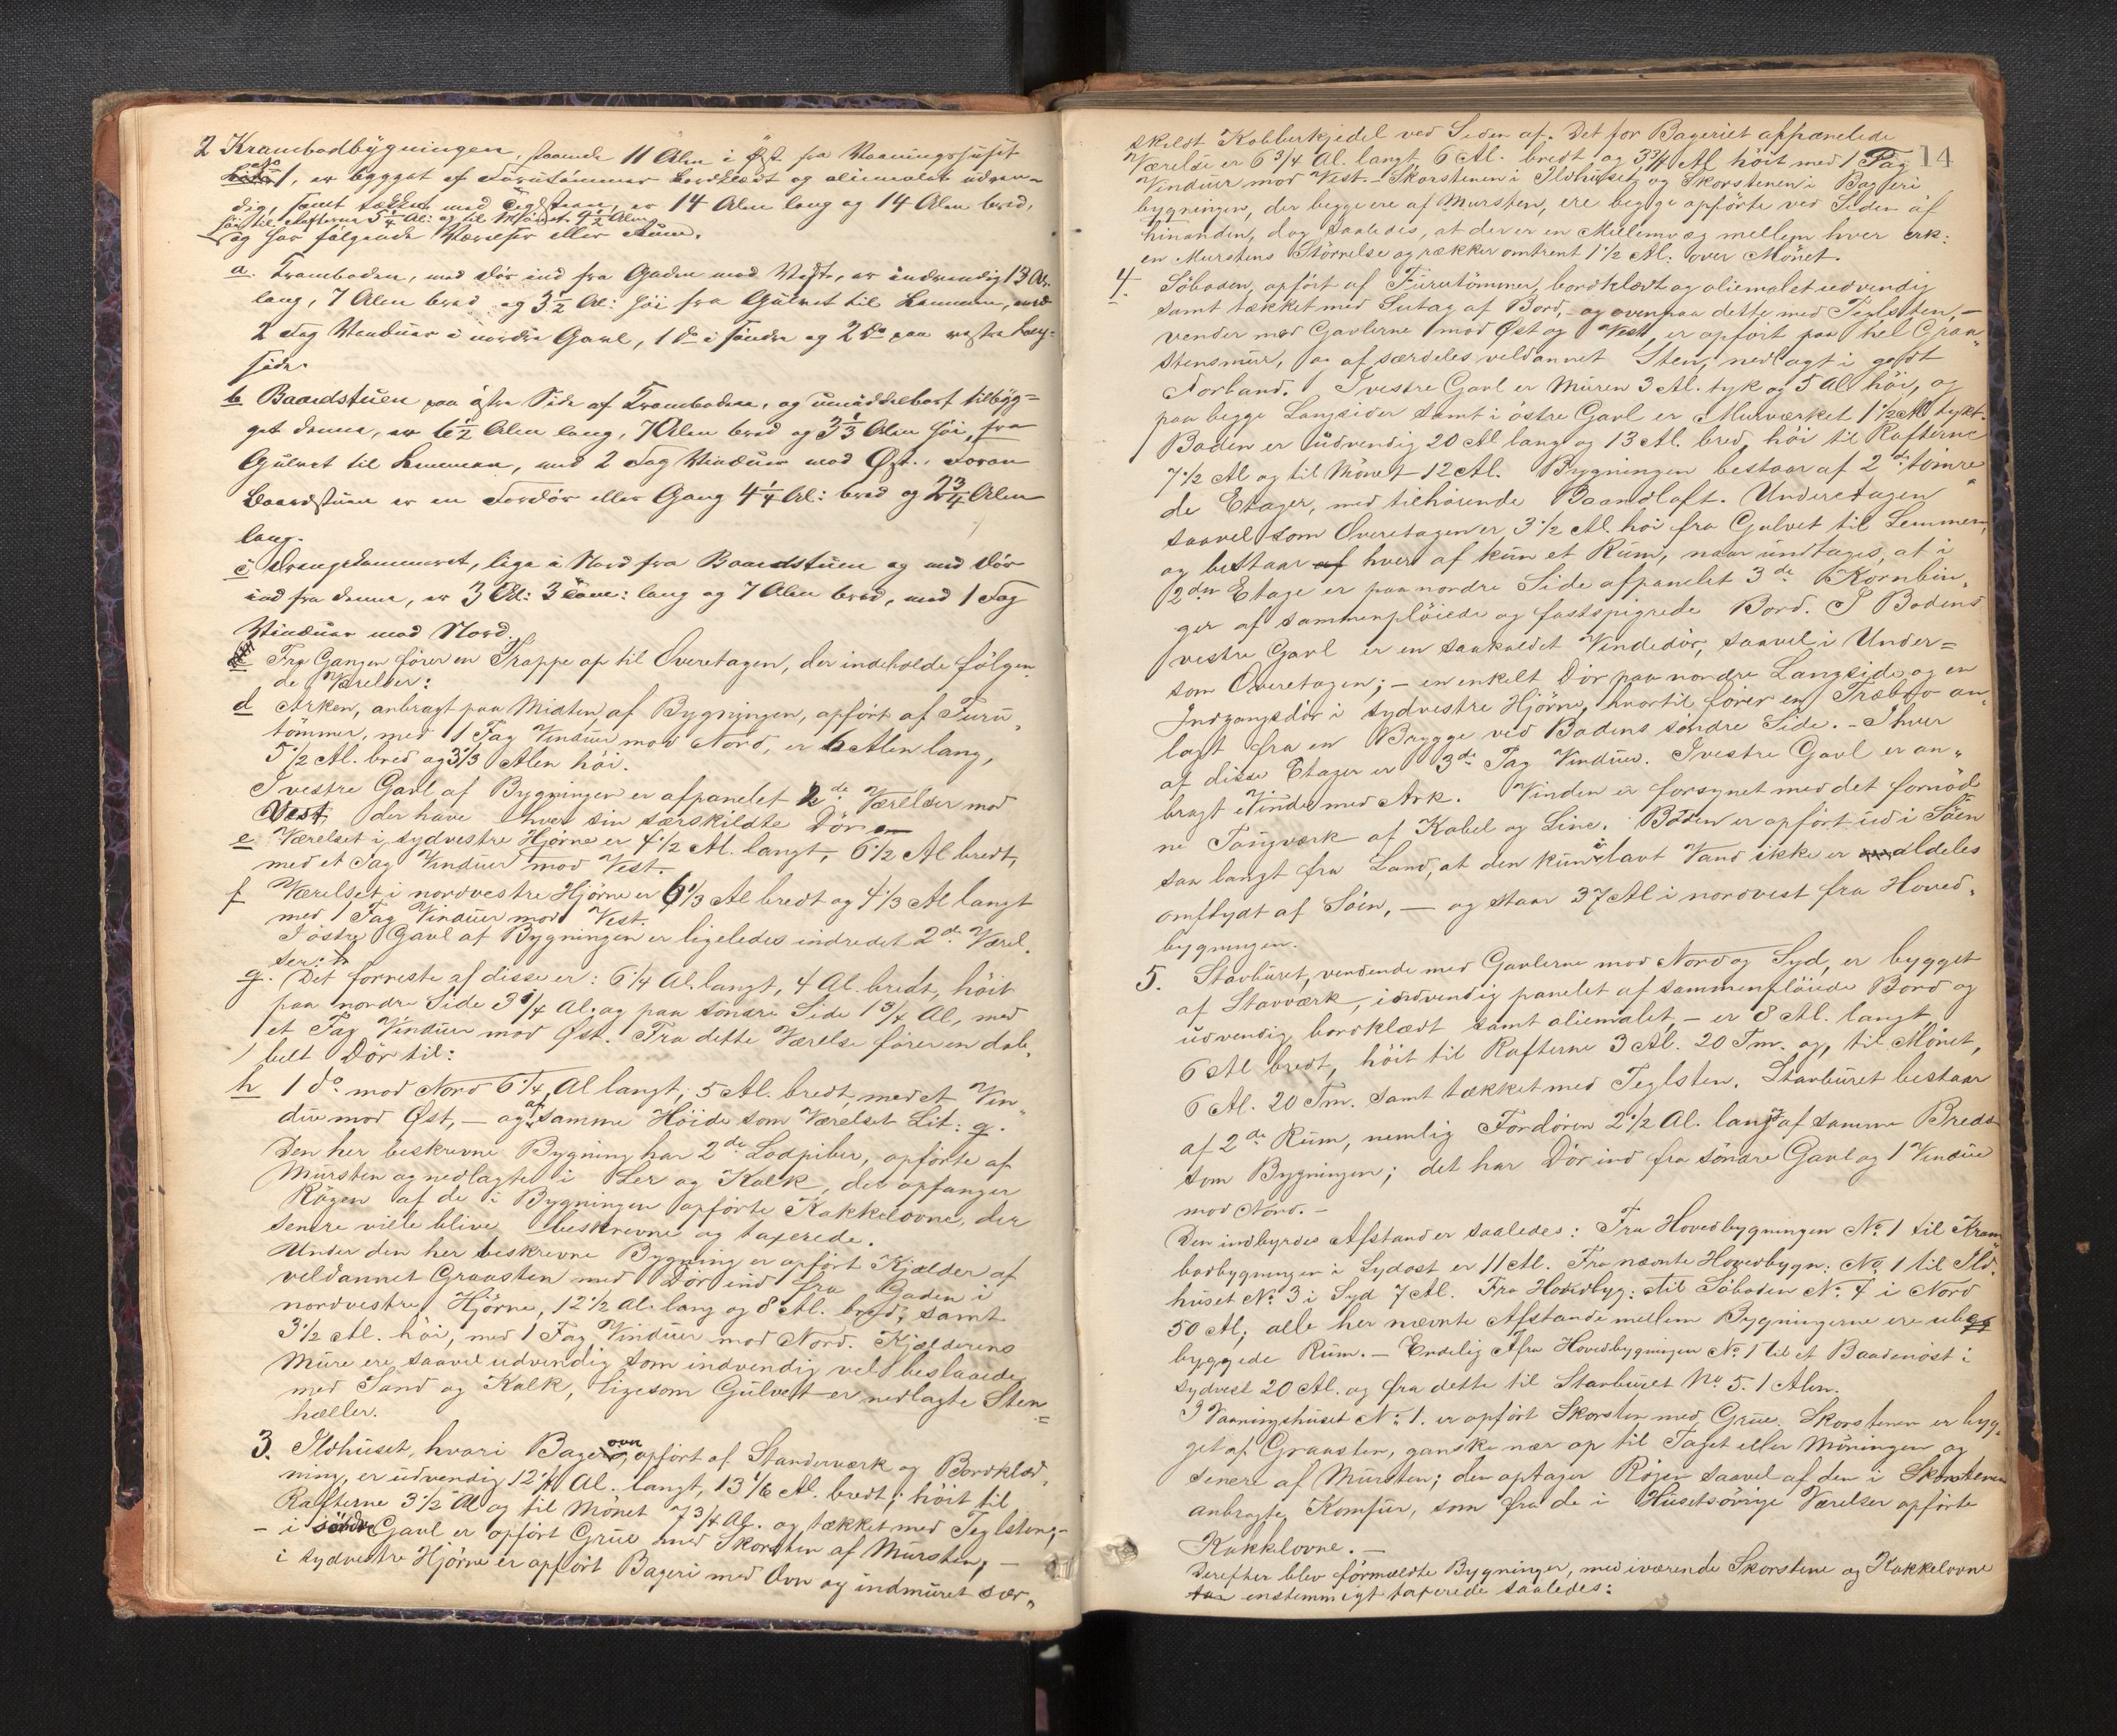 2 Krambodbÿgningen, staaende 11 Alen i Øst fra Vaaningshuset
No 1, er bygget af Furutømmer bordklædt og oliemalet udven-
dig, samt tækket med Teglsteen, er 14 Alen lang og 14 Alen bred,
høi til Rafterne 5 1/4 Al: og til Mønet 9 1/2 Alen,
og har følgende Værelser eller Rum.
a. Kramboden, med Dør ind fra Gaden mod Vest, er indvendig 13 Al.
lang, 7 Alen bred og 3 1/2 Al: høi fra Gulvet til Lemmen, med
2 Fag Vinduer i nordre Gavl, 1 do i søndre og 2 do paa vestre Lang-
side.
b Baardstuen paa østre Side af Kramboden, og umiddelbart tilbÿg=
get denne, er 6 1/2 Alen lang, 7 Alen bred og 3 1/3 Alen høi, fra
Gulvet til Lemmen, med 2 Fag Vinduer mod Øst. Foran
Baardstuen er en Fordør eller Gang 4 1/4 Al: bred og 2 3/4 Alen
lang.
c Drengekammeret, lige i Nord fra Baardstuen og med Dør
ind fra denne, er 3 Al: 3 Tom: lang og 7 Alen bred, med 1 Fag
Vinduer mod Nord.
Fra Gangen fører en Trappe op til Overetagen, der indeholde følgen
de Værelser:
d Arken, anbragt paa Midten af Bygningen, opført af Furu
tømmer, med 1 Fag Vinduer mod Nord, er 6 Alen lang,
5 1/2 Al. bred og 3 1/3 Alen høi.
I vestre Gavl af Bygningen er afpanelet 2de Værelser mod
Vest, der have hver sin særskildte Dør
e Værelset i sydvestre Hjørne er 4 1/2 Al. langt, 6 1/2 Al bredt,
med et Fag Vinduer mod Vest.
f Værelset i nordvestre Hjørne er 6 1/3 Al bredt og 4 1/3 Al langt
med 1 Fag Vinduer mod Vest.
I østre Gavl af Bygningen er ligeledes indredet 2de Værel
ser:
g. Det forreste af disse er: 6 1/4 Al. langt, 4 Al. bredt, høit
paa nordre Side 3 1/4 Al. og paa søndre Side 1 3/4 Al, med
et Fag Vinduer mod Øst. Fra dette Værelse fører en dob,
belt Dør til:
h 1 do mod Nord 6 1/4 Al langt, 5 Al. bredt, med et Vin
due mod Øst, — og af samme Høide som Værelset Lit: g.
Den her beskrevne Bygning har 2de Lodpiber, opførte af
Mursten og nedlagte i Ler og Kalk, der opfanger
Røgen af de i Bygningen opførte Kakkelovne, der
senere ville blive beskrevne og taxerede.
Under den her beskrevne Bygning er opført Kjælder af
veldannet Graasten med Dør ind fra Gaden i
nordvestre Hjørne, 12 1/2 Al. lang og 8 Al. bred, samt
3 1/2 Al. høi, med 1 Fag Vinduer mod Nord. Kjælderens
Mure ere saavel udvendig som indvendig vel beslaaede
med Sand og Kalk, ligesom Gulvet er nedlagte Sten
hæller.
3. Ildhuset, hvori Bagerovn, opført af Standerværk og Bordklæd
ning, er udvendig 12 1/4 Al. langt, 13 1/6 Al. bredt; høit til
Rafterne 3 1/2 Al og til Mønet 7 3/4 Al. og tækket med Teglsten,—
— i søndre Gavl er opført Grue med Skorsten af Mursten, —
i sydvestre Hjørne er opført Bageri med Ovn og indmuret sær„
14
skildt Kobberkjedel ved Siden af. Det for Bageriet afpanelede
Værelse er 6 3/4 Al. langt 6 Al. bredt og 3 3/4 Al. høit med 1 Fag
Vinduer mod Vest. — Skorstenen i Ildhuset og Skorstenen i Bageri
bygningen, der begge ere af Mursten, ere begge opførte ved Siden af
hinanden, dog saaledes, at der er en Mellemvæg mellem hver cirk:
en Murstens Størrelse og rækker omtrent 1 1/2 Al: over Mønet.
4. Søboden, opført af Furutømmer, bordklædt og oliemalet udvendig
samt tækket med Sutag af Bord, og ovenpaa dette med Teglsten, —
vender med Gavlerne mod Øst og Vest, er opført paa hel Graa
stensmur, og af særdeles veldannet Sten, nedlagt i godt
Forband. I vestre Gavl er Muren 3 Al. tyk og 5 Al høi, og
paa begge Langsider samt i østre Gavl er Murværket 1 1/2 Al tykt.
Boden er udvendig 20 Al lang og 13 Al. bred, høi til Rafterne
7 1/2 Al og til Mønet 12 Al. Bygningen bestaar af 2de tømre
de Etager, med tilhørende Baandloft. Underetagen
saavel som Overetagen er 3 1/2 Al. høi fra Gulvet til Lemmen,
og bestaar af hver af kun et Rum, naar undtages, at i
2den Etage er paa nordre Side afpanelet 3de Kornbin,
ger af sammenpløiede og fastspigrede Bord. I Bodens
vestre Gavl er en saakaldet Vindedør, saavel i Under=
som Overetagen; — en enkelt Dør paa nordre Langside og en
Indgangsdør i sydvestre Hjørne, hvortil fører en Træbro an
lagt fra en Brygge ved Bodens søndre Side. — I hver
af disse Etager er 3de Fag Vinduer. I vestre Gavl er an„
bragt Vinde med Ark. Vinden er forsynet med det fornød
ne Tougværk af Kabel og Line. Boden er opført ud i Søen
saa langt fra Land, at den kun i lavt Vand ikke er aldeles
omflydt af Søen, — og staar 37 Al i nordvest fra Hoved-
bygningen.
5. Stavburet, vendende med Gavlerne mod Nord og Syd, er bygget
af Stavværk, indvendig panelet af sammenpløiede Bord og
udvendig bordklædt samt oliemalet, — er 8 Al. langt,
6 Al bredt, høit til Rafterne 3 Al. 20 Tm. og, til Mønet,
6 Al. 20 Tm. samt tækket med Teglsten. Stavburet bestaar
af 2de Rum, nemlig Fordøren 2 1/2 Al. lang af samme Bredd
som Bygningen; det har Dør ind fra søndre Gavl og 1 Vindue
mod Nord. —
Den indbyrdes Afstand er saaledes: Fra Hovedbygningen No 1 til Kram
bodbygningen i Sydost er 11 Al. Fra nævnte Hovedbygn: No 1 til Ild,
huset No 3 i Syd 7 Al. Fra Hovedbyg: til Søboden No 4 i Nord
50 Al; alle her nævnte Afstande mellem Bygningerne ere ube
byggede Rum. — Endelig fra Hovedbygningen No 1 til et Baadenøst i
sydvest 20 Al. og fra dette til Stavburet No 5. 1 Alen.
I Vaaningshuset No 1. er opført Skorsten med Grue. Skorstenen er byg,
get af Graasten, ganske nær op til Taget eller Møningen og
senere af Mursten; den optager Røgen saavel af den i Skorstenen
anbragte Komfur, som fra de i Husets øvrige Værelser opførte
Kakkelovne. —
Derefter blev formeldte Bygninger, med iværende Skorstene og Kakkelovne
enstemmigt taxerede saaledes: